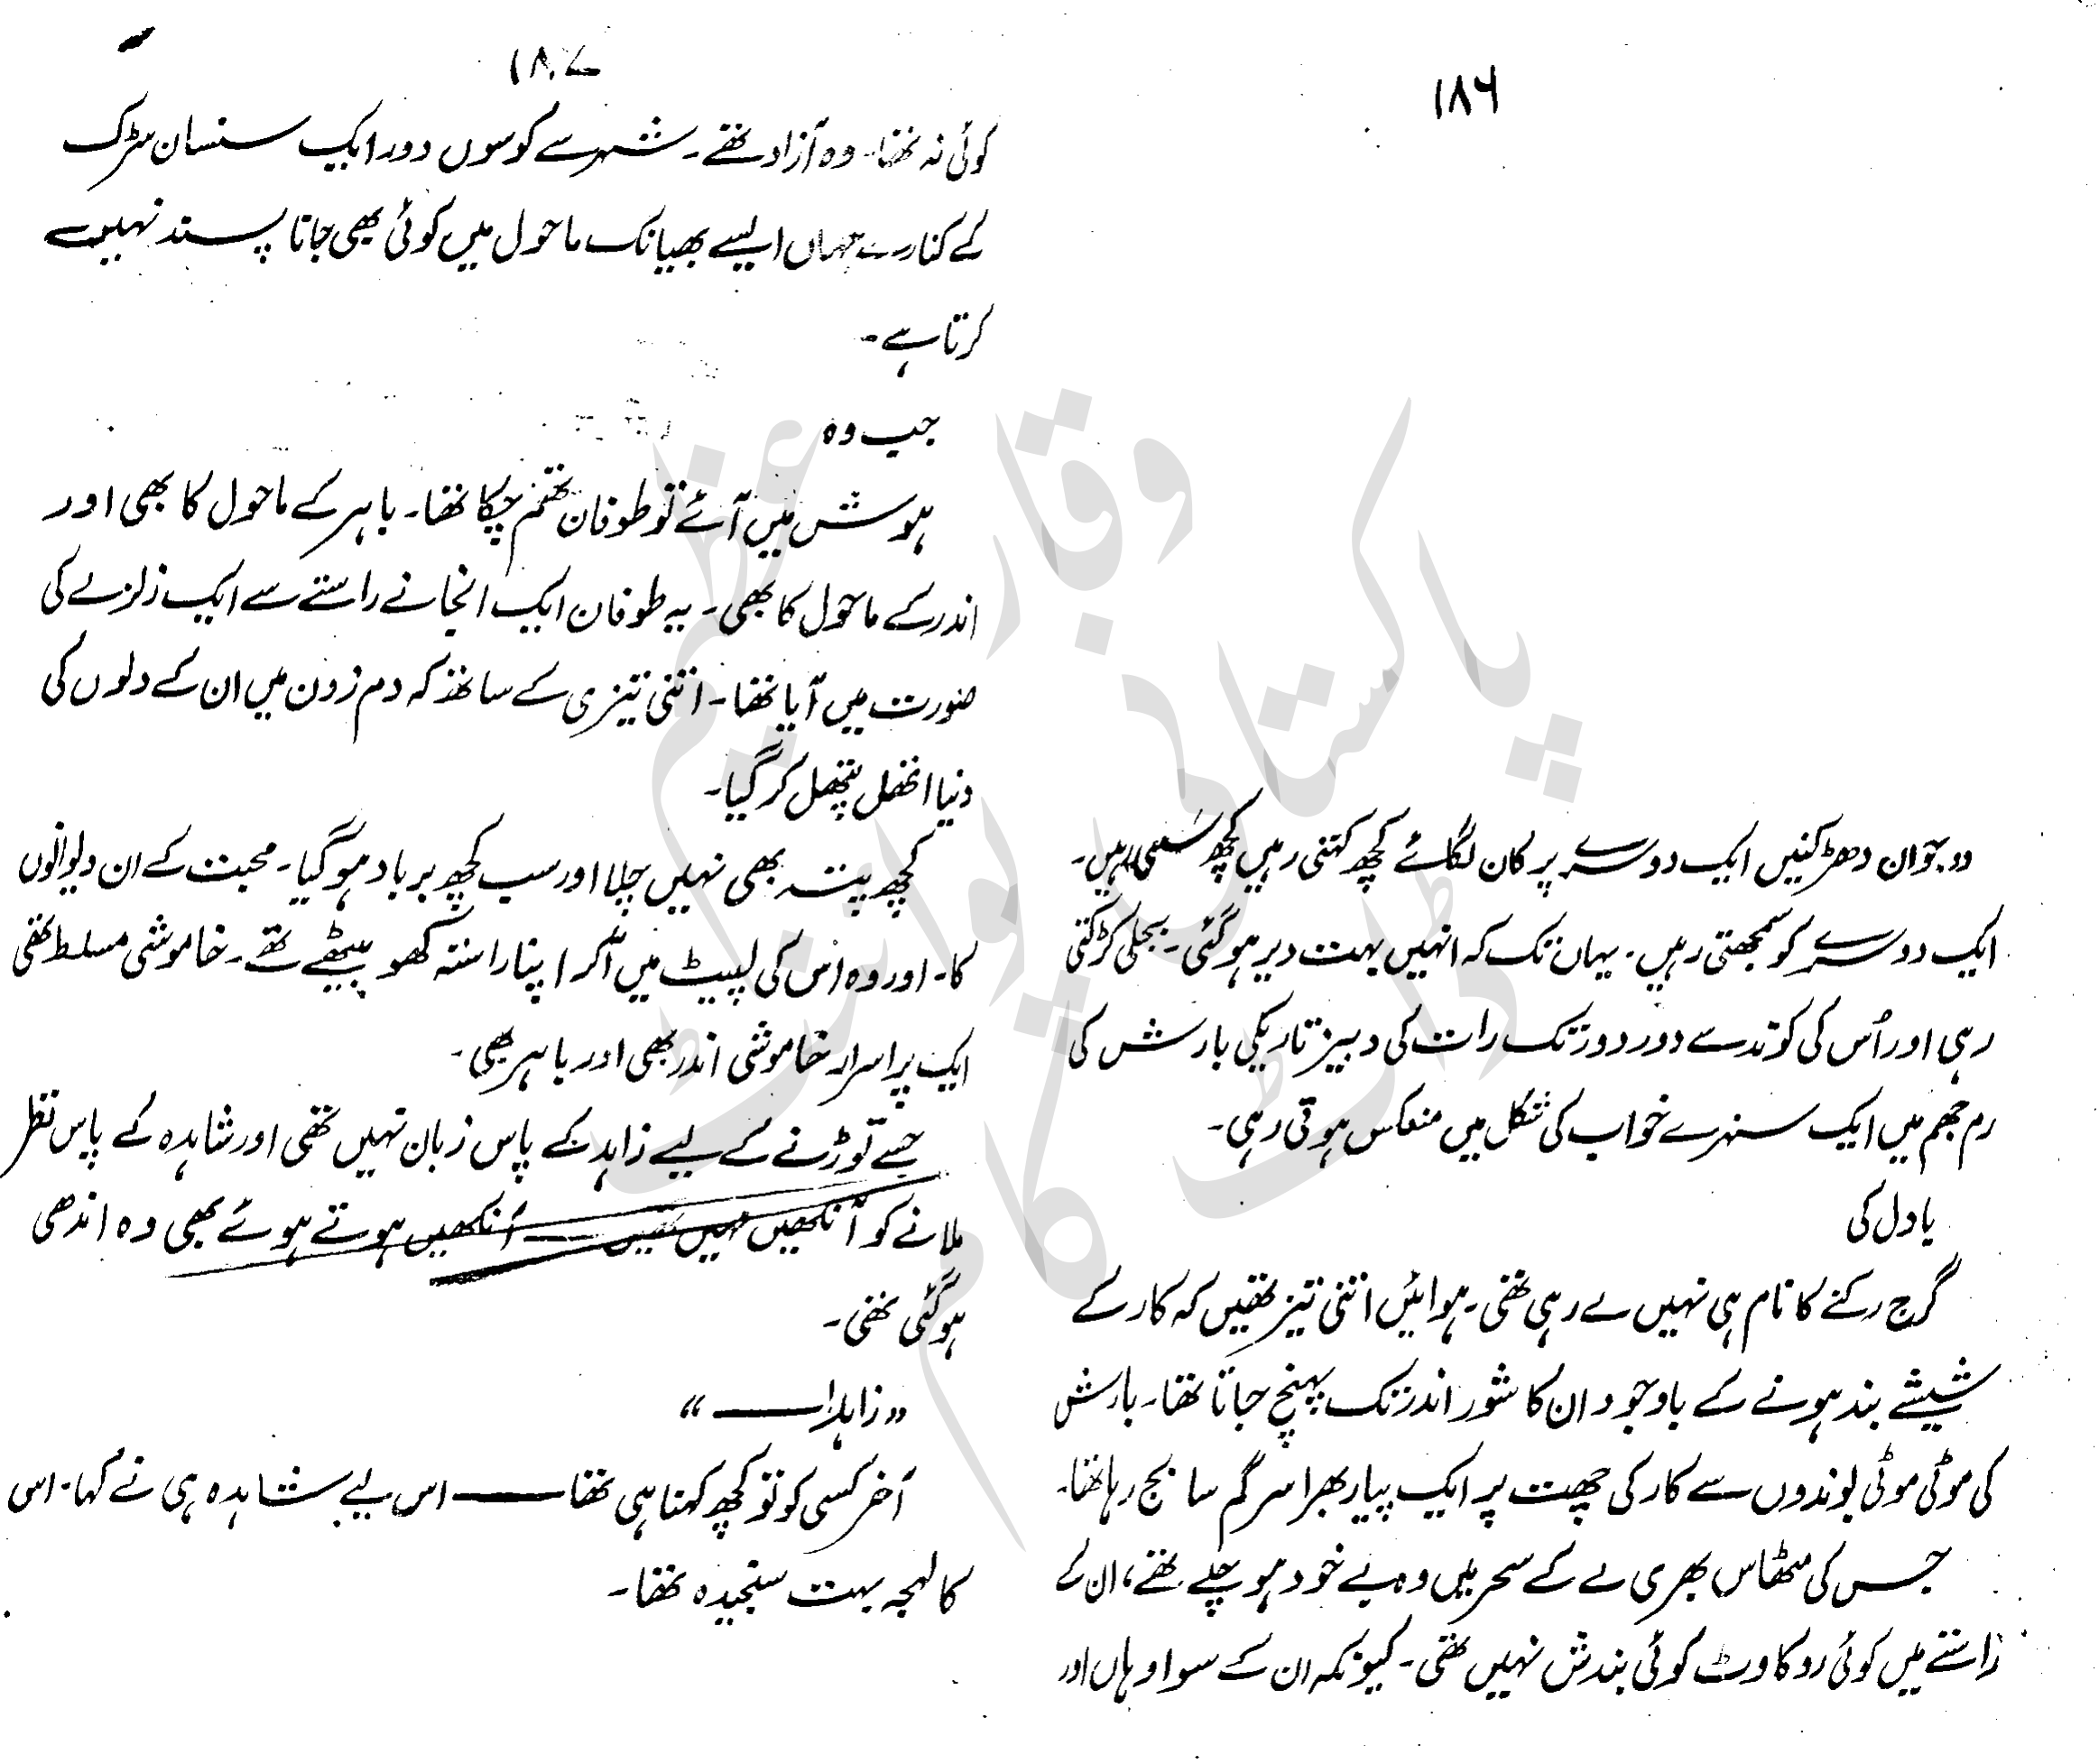 ۱۸۶
دو جوان دھڑکنیں ایک دوسرے پر کان لگائے کچھ کہتی رہیں کچھ سنتی رہیں۔
ایک دوسرے کو سمجھتی رہیں۔ یہاں تک کہ انہیں بہت دیر ہو گئی۔ بجلی کڑکتی
رہی اور اُس کی کوند سے دور دور تک رات کی دبیز تاریکی بارش کی
رم جھم میں ایک سنہرے خواب کی شکل میں منعکس ہوتی رہی۔
بادل کی
گرج رکنے کا نام ہی نہیں لے رہی تھی۔ ہوائیں اتنی تیز تھیں کہ کار کے
شیشے بند ہونے کے باوجود ان کا شور اندر تک پہنچ جاتا تھا۔ بارش
کی موٹی موٹی بوندوں سے کار کی چھت پر ایک پیار بھرا سرگم سا بج رہا تھا۔
جس کی مٹھاس بھری لے کے سحر میں وہ بے خود ہو چلے تھے، ان کے
راستے میں کوئی روکاوٹ کوئی بندش نہیں تھی۔ کیونکہ ان کے سوا وہاں اور
۱۸۷
کوئی نہ تھا۔ وہ آزاد تھے۔ شہر سے کوسوں دور ایک سنسان سڑک
کے کنارے جہاں ایسے بھیانک ماحول میں کوئی بھی جانا پسند نہیں
کرتا ہے۔
جب وہ
ہوش میں آئے تو طوفان تھم چکا تھا۔ باہر کے ماحول کا بھی اور
اندر کے ماحول کا بھی۔ یہ طوفان ایک انجانے راستے سے ایک زلزلے کی
صورت میں آیا تھا۔ اتنی تیزی کے ساتھ کہ دم زون میں ان کے دلوں کی
دنیا اتھل پتھل کر گیا۔
کچھ پتہ بھی نہیں چلا اور سب کچھ برباد ہو گیا۔ محبت کے ان دیوانوں
کا۔ اور وہ اس کی لپیٹ میں آکر اپنا راستہ کھو بیٹھے تھے۔ خاموشی مسلط تھی
ایک پراسرار خاموشی اندر بھی اور باہر بھی۔
جسے توڑنے کے لیے زاہد کے پاس زبان نہیں تھی اور شاہدہ کے پاس نظر
ملانے کو آنکھیں نہیں تھیں — آنکھیں ہوتے ہوئے بھی وہ اندھی
ہو گئی تھی۔
”زاہد — “
آخر کسی کو تو کچھ کہنا ہی تھا — اس لیے شاہدہ ہی نے کہا۔ اس
کا لہجہ بہت سنجیدہ تھا۔